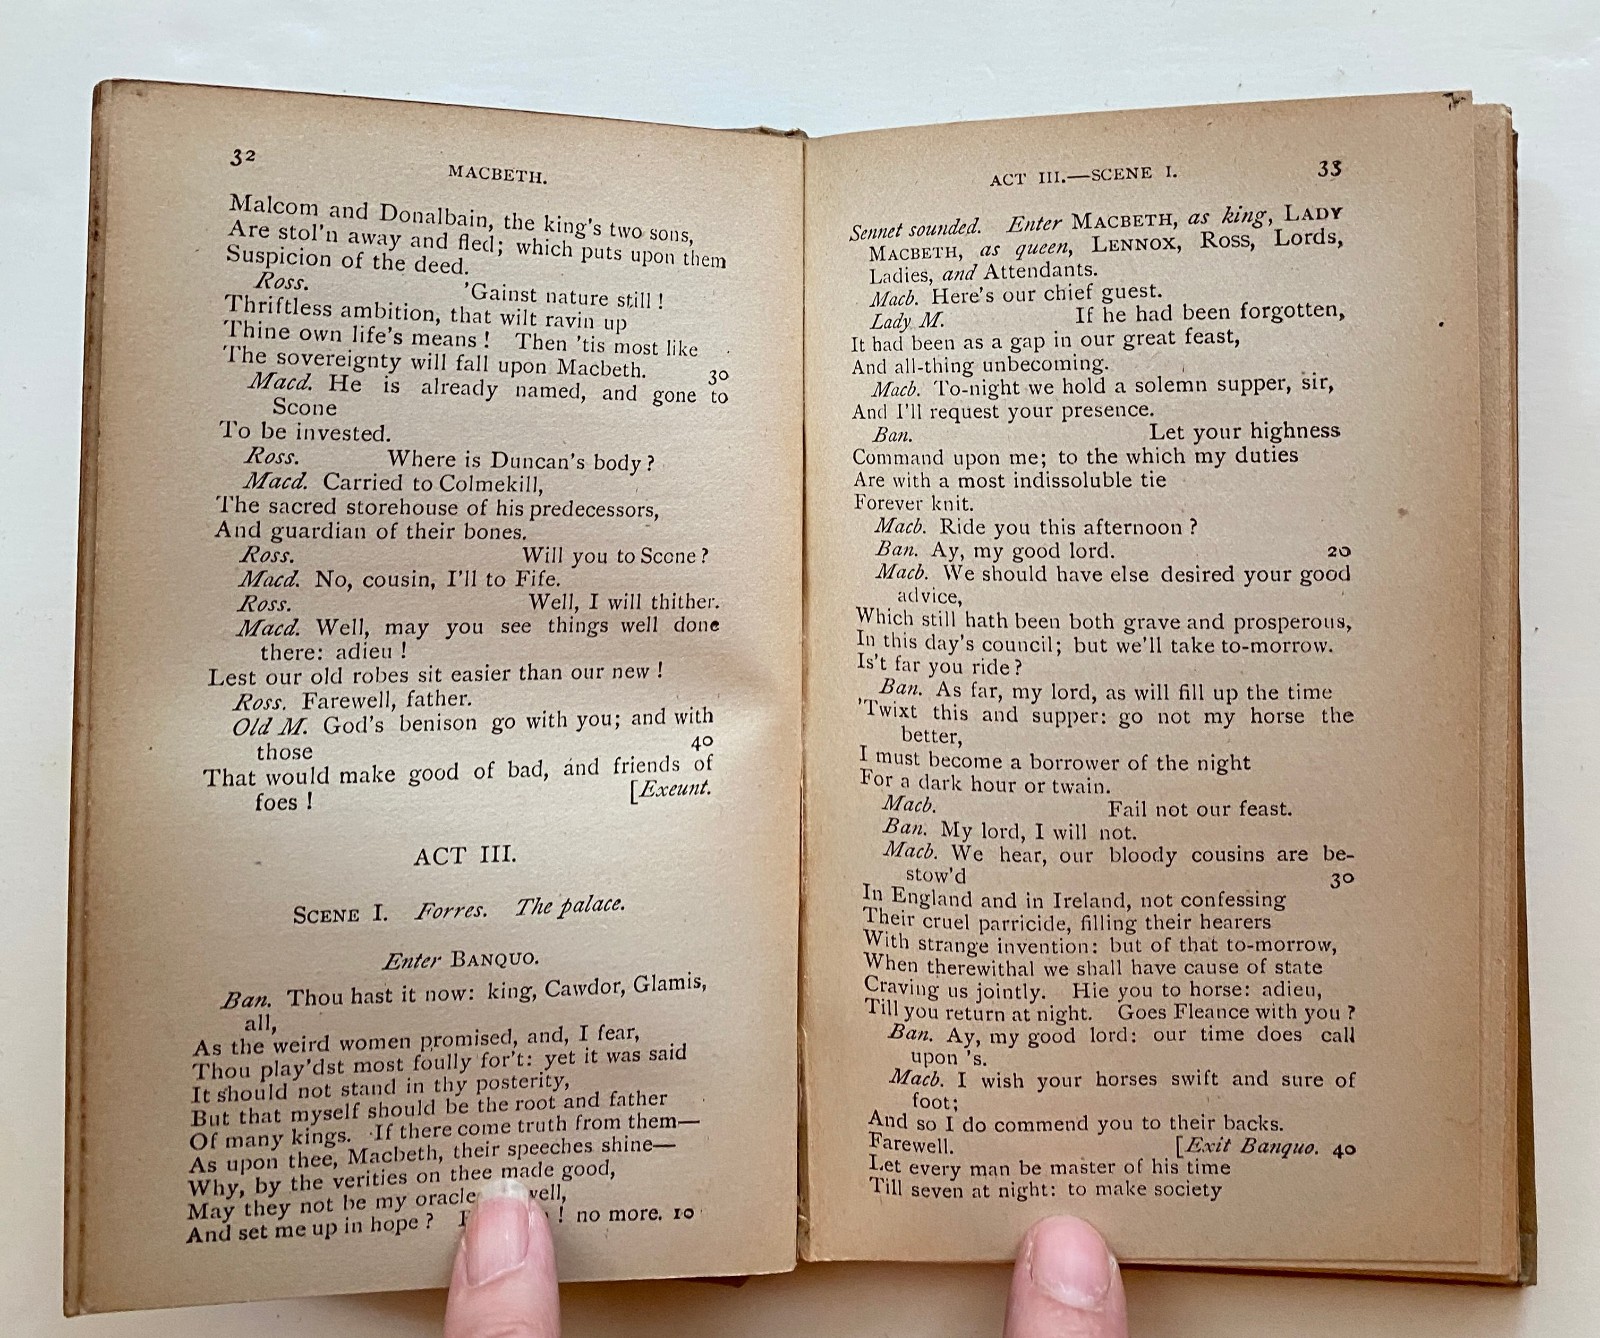 32
MACBETH.
Malcom and Donalbain, the king's two sons,
Are stol'n away and fled; which puts upon them
Suspicion of the deed.
Ross. 'Gainst nature still!
Thriftless ambition, that wilt ravin up
Thine own life's means! Then 'tis most like
The sovereignty will fall upon Macbeth. 30
Macd. He is already named, and gone to
Scone
To be invested.
Ross. Where is Duncan's body?
Macd. Carried to Colmekill,
The sacred storehouse of his predecessors,
And guardian of their bones.
Ross. Will you to Scone?
Macd. No, cousin, I'll to Fife.
Ross. Well, I will thither.
Macd. Well, may you see things well done
there: adieu!
Lest our old robes sit easier than our new!
Ross. Farewell, father.
Old M. God's benison go with you; and with
those 40
That would make good of bad, and friends of
foes! [Exeunt.
ACT III.
SCENE I. Forres. The palace.
Enter BANQUO.
Ban. Thou hast it now: king, Cawdor, Glamis,
all,
As the weird women promised, and, I fear,
Thou play'dst most foully for't: yet it was said
It should not stand in thy posterity,
But that myself should be the root and father
Of many kings. If there come truth from them—
As upon thee, Macbeth, their speeches shine—
Why, by the verities on thee made good,
May they not be my oracle well,
And set me up in hope? ! no more. 10
ACT III.—SCENE I. 33
Sennet sounded. Enter MACBETH, as king, LADY
MACBETH, as queen, LENNOX, ROSS, Lords,
Ladies, and Attendants.
Macb. Here's our chief guest.
Lady M. If he had been forgotten,
It had been as a gap in our great feast,
And all-thing unbecoming.
Macb. To-night we hold a solemn supper, sir,
And I'll request your presence.
Ban. Let your highness
Command upon me; to the which my duties
Are with a most indissoluble tie
Forever knit.
Macb. Ride you this afternoon?
Ban. Ay, my good lord. 20
Macb. We should have else desired your good
advice,
Which still hath been both grave and prosperous,
In this day's council; but we'll take to-morrow.
Is't far you ride?
Ban. As far, my lord, as will fill up the time
'Twixt this and supper: go not my horse the
better,
I must become a borrower of the night
For a dark hour or twain.
Macb. Fail not our feast.
Ban. My lord, I will not.
Macb. We hear, our bloody cousins are be-
stow'd 30
In England and in Ireland, not confessing
Their cruel parricide, filling their hearers
With strange invention: but of that to-morrow,
When therewithal we shall have cause of state
Craving us jointly. Hie you to horse: adieu,
Till you return at night. Goes Fleance with you?
Ban. Ay, my good lord: our time does call
upon 's.
Macb. I wish your horses swift and sure of
foot;
And so I do commend you to their backs.
Farewell. [Exit Banquo. 40
Let every man be master of his time
Till seven at night: to make society